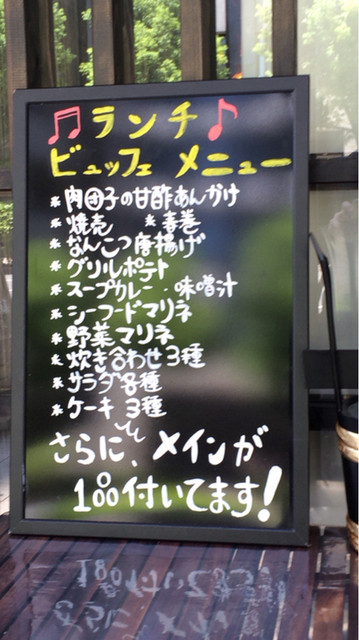 ♫ランチ♪
ビュッフェ メニュー
※肉団子の甘酢あんかけ
※焼売 ※春巻
※なんこつ唐揚げ
※グリルポテト
※スープカレー・味噌汁
※シーフードマリネ
※野菜マリネ
※炊き合わせ3種
※サラダ8種
※ケーキ 3種
さらに、メインが
1品付いてます!